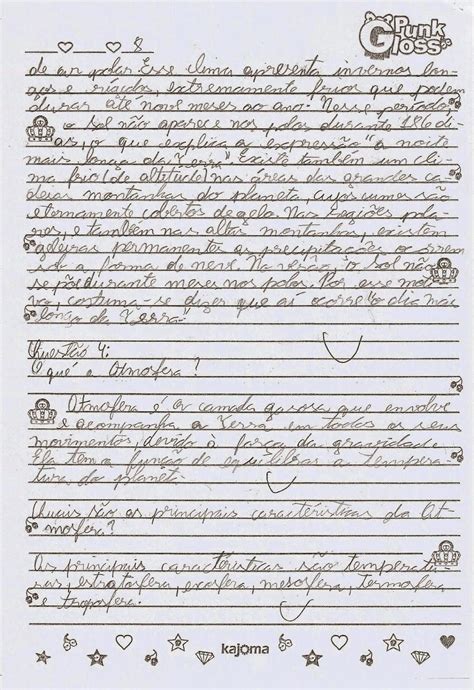 Punk
Gloss
8
de ar polar. Esse clima apresenta invernos lon-
gos e rígidos, extremamente frios que podem
durar até nove meses ao ano. Nesse período
o sol não aparece nos polos durante 186 di-
as, o que explica as expressão "a noite
mais longa da Terra". Existe também um cli-
ma frio (de altitude) nas áreas das grandes ca-
deias montanhas do planeta, cujos cumes são
eternamente cobertos de gelo. Nas regiões pla-
nas, e também nas altas montanhas, existem
geleiras permanentes as precipitações ocorrem
sob a forma de neve. No verão, o Sol não
se põe durante meses nos polos. Por esse moti-
vo, costuma-se dizer que aí ocorre "o dia mais
longo da Terra"
Questão 4:
O quê a Atmosfera?
Atmofera é a camada gasosa que envolve
e acompanha a Terra em todos os seus
movimentos, devido à força da gravidade.
Ela tem a função de equilibras a tempera-
tura do planeta
Quais são as principais características da At-
mosfera?
As principais características são temperatu-
ras, estratosfera, exosfera, mesosfera, termosfera
e troposfera.
kajoma